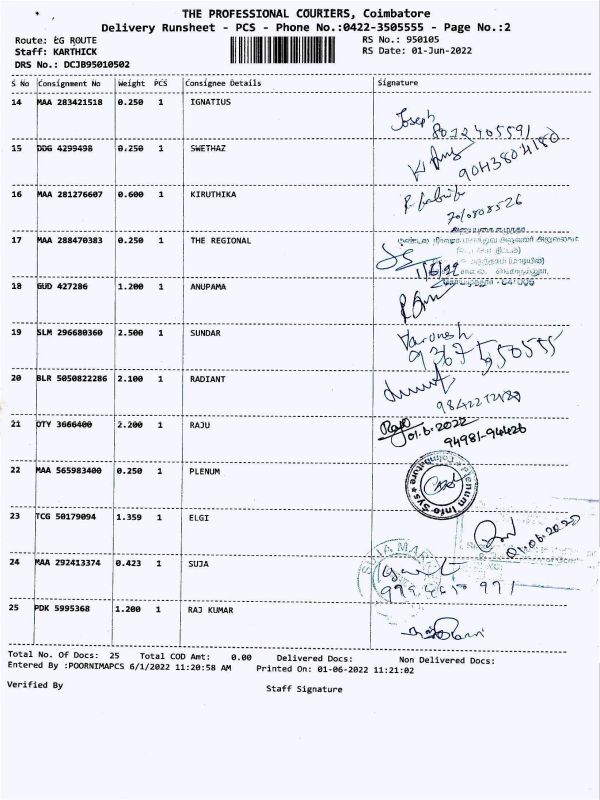 THE PROFESSIONAL COURIERS, Coimbatore
Delivery Runsheet - PCS - Phone No.:0422-3505555 - Page No.:2
Route: EG ROUTE
RS No.: 950105
Staff: KARTHICK
RS Date: 01-Jun-2022
DRS No.: DCJB95010502
S No Consignment No Weight PCS Consignee Details Signature
14 MAA 283421518 0.250 1 IGNATIUS
Joseph
8072405591
15 DDG 4299498 0.250 1 SWETHAZ
9043804180
16 MAA 281276607 0.600 1 KIRUTHIKA
7010808526
17 MAA 288470383 0.250 1 THE REGIONAL
1/6/22
18 GUD 427286 1.200 1 ANUPAMA
19 SLM 296680360 2.500 1 SUNDAR
9367550555
20 BLR 5050822286 2.100 1 RADIANT
21 OTY 3666400 2.200 1 RAJU
Raju
01.6.2022
94981-94426
22 MAA 565983400 0.250 1 PLENUM
Plenum Info Sys * Coimbatore *
23 TCG 50179094 1.359 1 ELGI
01.06.2022
24 MAA 292413374 0.423 1 SUJA
SUJA
25 PDK 5995368 1.200 1 RAJ KUMAR
Total No. Of Docs: 25 Total COD Amt: 0.00 Delivered Docs: Non Delivered Docs:
Entered By :POORNIMAPCS 6/1/2022 11:20:58 AM Printed On: 01-06-2022 11:21:02
Verified By
Staff Signature